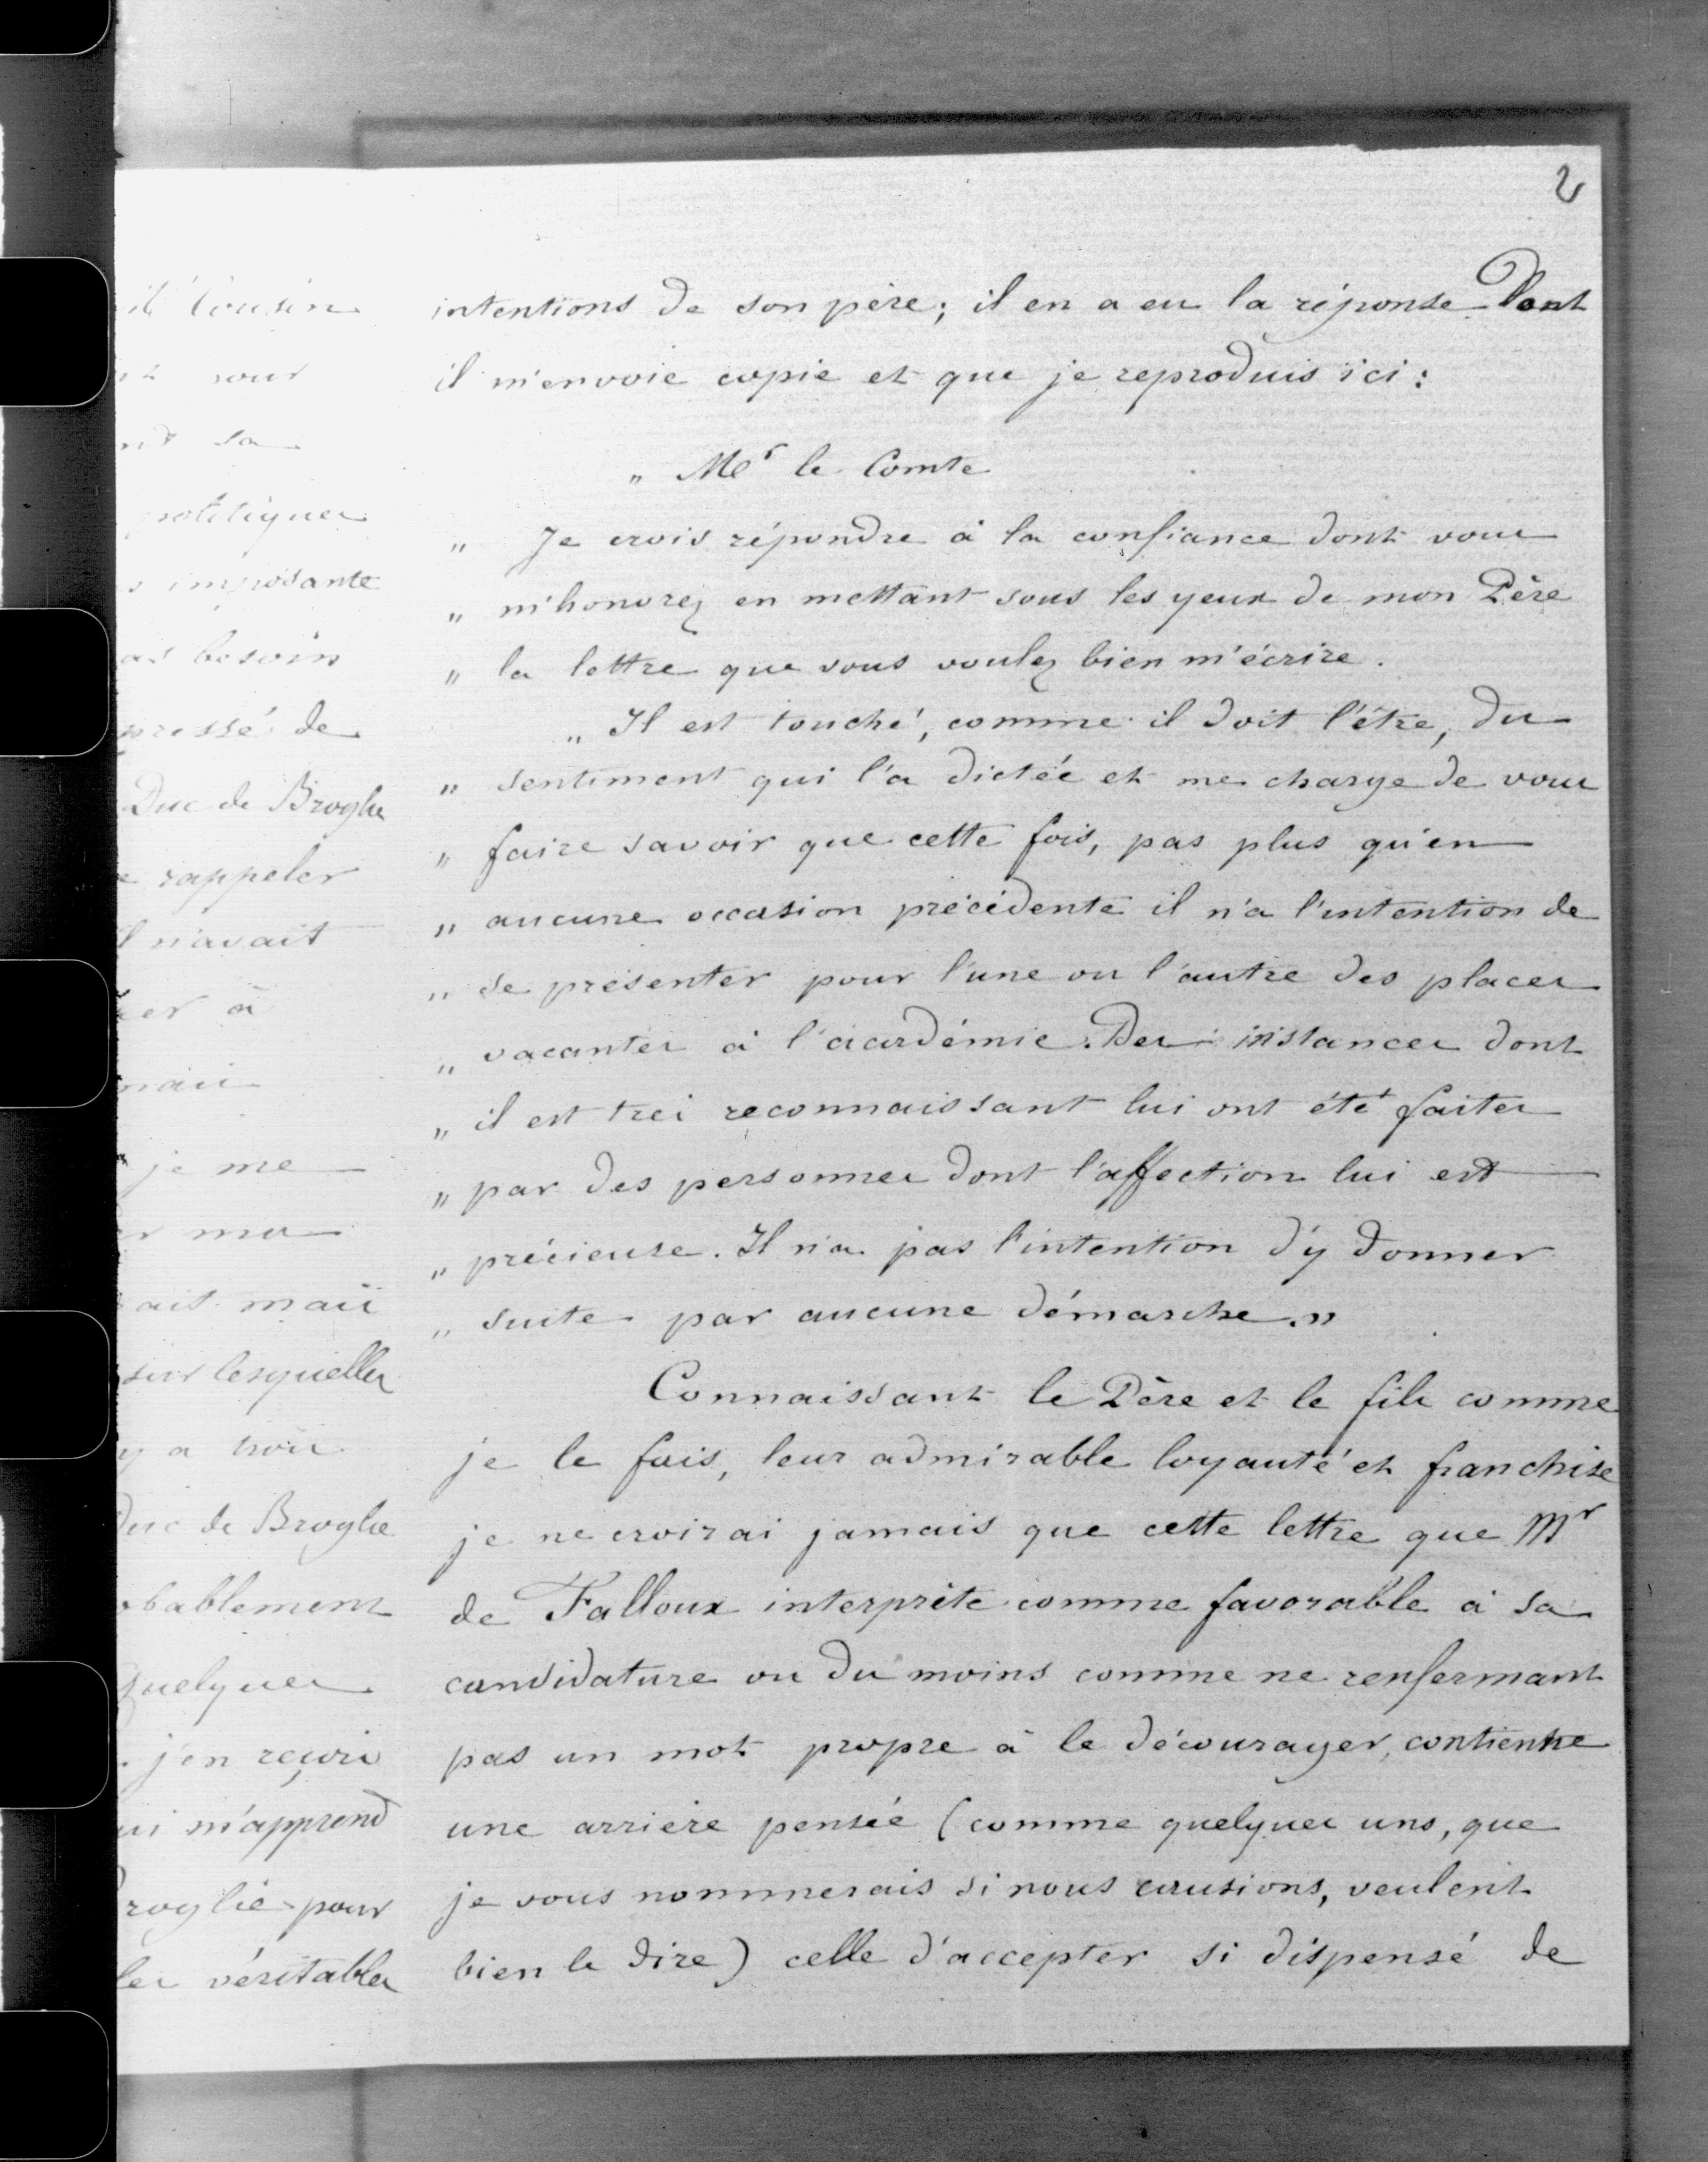 2
intentions de son père; il en a eu la réponse Dont
il m'envoie copie et que je reproduis ici:
" Mr le Comte
" Je crois répondre à la confiance dont vous
" m'honorez en mettant sous les yeux de mon Père
" la lettre que vous voulez bien m'écrire.
" Il est touché, comme il doit l'être, du
" sentiment qui l'a dictée et me charge de vous
" faire savoir que cette fois, pas plus qu'en
" aucune occasion précédente il n'a l'intention de
" se présenter pour l'une ou l'autre des places
" vacantes à l'académie. Des instances dont
" il est très reconnaissant lui ont été faites
" par des personnes dont l'affection lui est
" précieuse. Il n'a pas l'intention d'y donner
" suite par aucune démarche."
Connaissant le Père et le fils comme
je le fais, leur admirable loyauté et franchise
je ne croirai jamais que cette lettre que Mr
de Falloux interprète comme favorable à sa
candidature ou du moins comme ne renfermant
pas un mot propre à le décourager, contienne
une arrière pensée (comme quelques uns, que
je vous nommerais si nous causions, veulent
bien le dire) celle d'accepter si dispensé de
sa
politiques
imposante
besoin
de
Duc de Broglie
rappeler
n'avait
à
je me
mais
sur lesquelles
y a trois
de Broglie
quelques
j'en reçois
m'apprend
pour
véritables